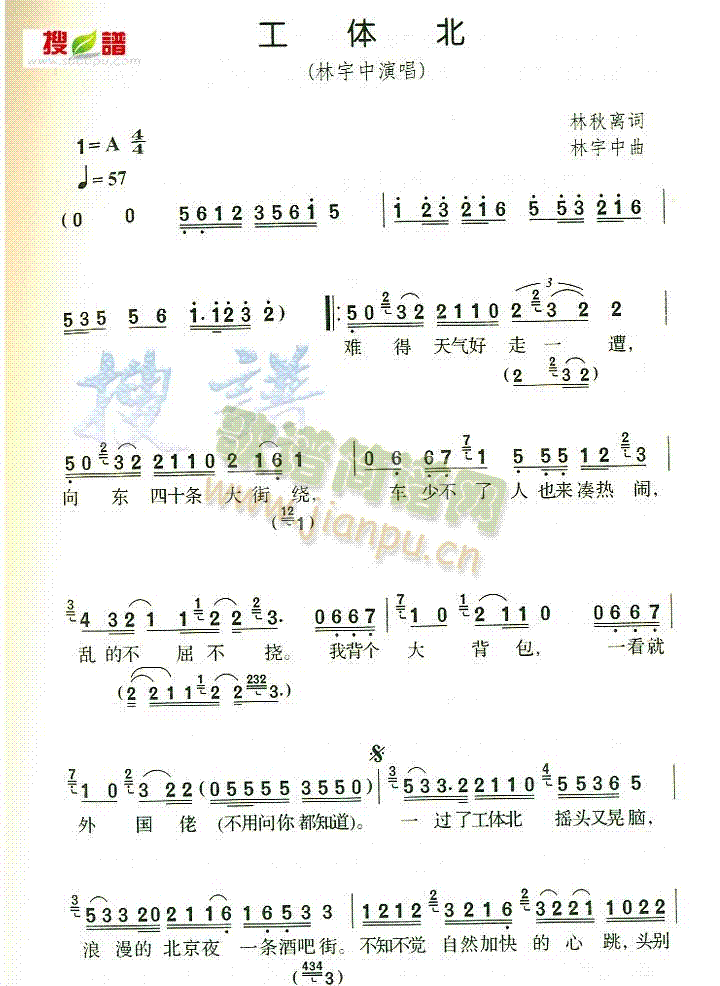 搜谱
www.sooopu.com
工 体 北
(林宇中演唱)
1=A 4/4
林秋离词
♩=57
林宇中曲
(0 0 5612 3561 5 | 1 23 216 5 53 216 |
535 56 1.123 2) ‖: 50 2 32 2110 2 2 3 2 2
难 得 天气好 走 一 遭,
(2 2 32)
50 2 32 2110 2 161 | 06 67 7 1 5 55 12 2 3 |
向 东 四十条 大 街 绕, 车 少不 了 人 也来凑热 闹,
(12 1)
搜 谱
歌谱简谱网
www.jianpu.cn
3 4 321 1 1 2 2 2 3. 0667 | 7 1 0 2 2110 0667 |
乱 的不 屈 不 挠。 我背个 大 背 包, 一看就
(2 211 1 2 2 232 3.)
7 1 0 2 3 22 (05555 3550) | 3 533.2 2110 4 5536 5 |
外 国 佬 (不用问你 都知道)。 一 过了工体北 摇头又晃脑,
3 53320 2116 1653 3 | 1212 2 3216 2 3221 1022 |
浪 漫的 北京夜 一条酒吧 街。 不知不觉 自然加快 的 心 跳, 头别
(434 3)